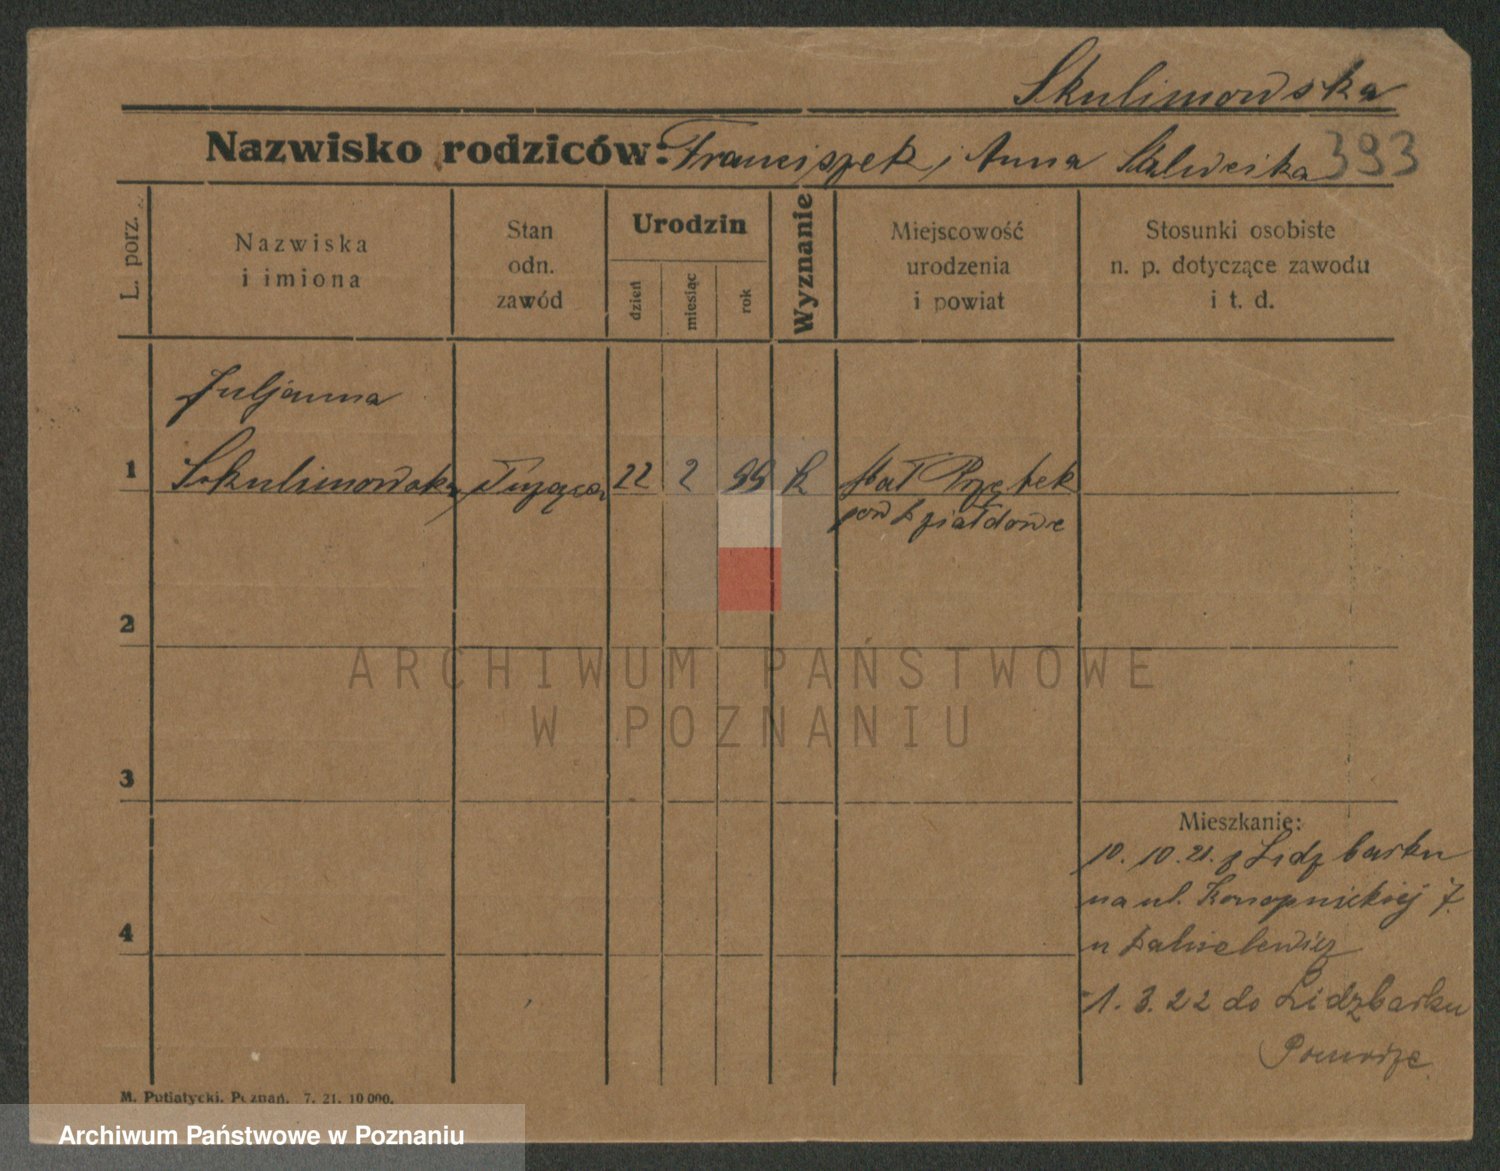 Skulimowska
Nazwisko rodziców: Franciszek i Anna 393
L. porz.
Nazwiska i imiona
Stan odn. zawód
Urodzin
dzień
miesiąc
rok
Wyznanie
Miejscowość urodzenia i powiat
Stosunki osobiste n. p. dotyczące zawodu i t. d.
Juljanna
1 Skulimowska służąca 22 2 99 k Mał Przętek
pow Działdowe
2
3
4
Mieszkanie:
10. 10. 21. z Lidzbarku
na ul. Konopnickiej 7.
u
1. 3. 22 do Lidzbarku
Pomorze
M. Putiatycki. Poznań. 7. 21. 10 000.
ARCHIWUM PAŃSTWOWE
W POZNANIU
Archiwum Państwowe w Poznaniu